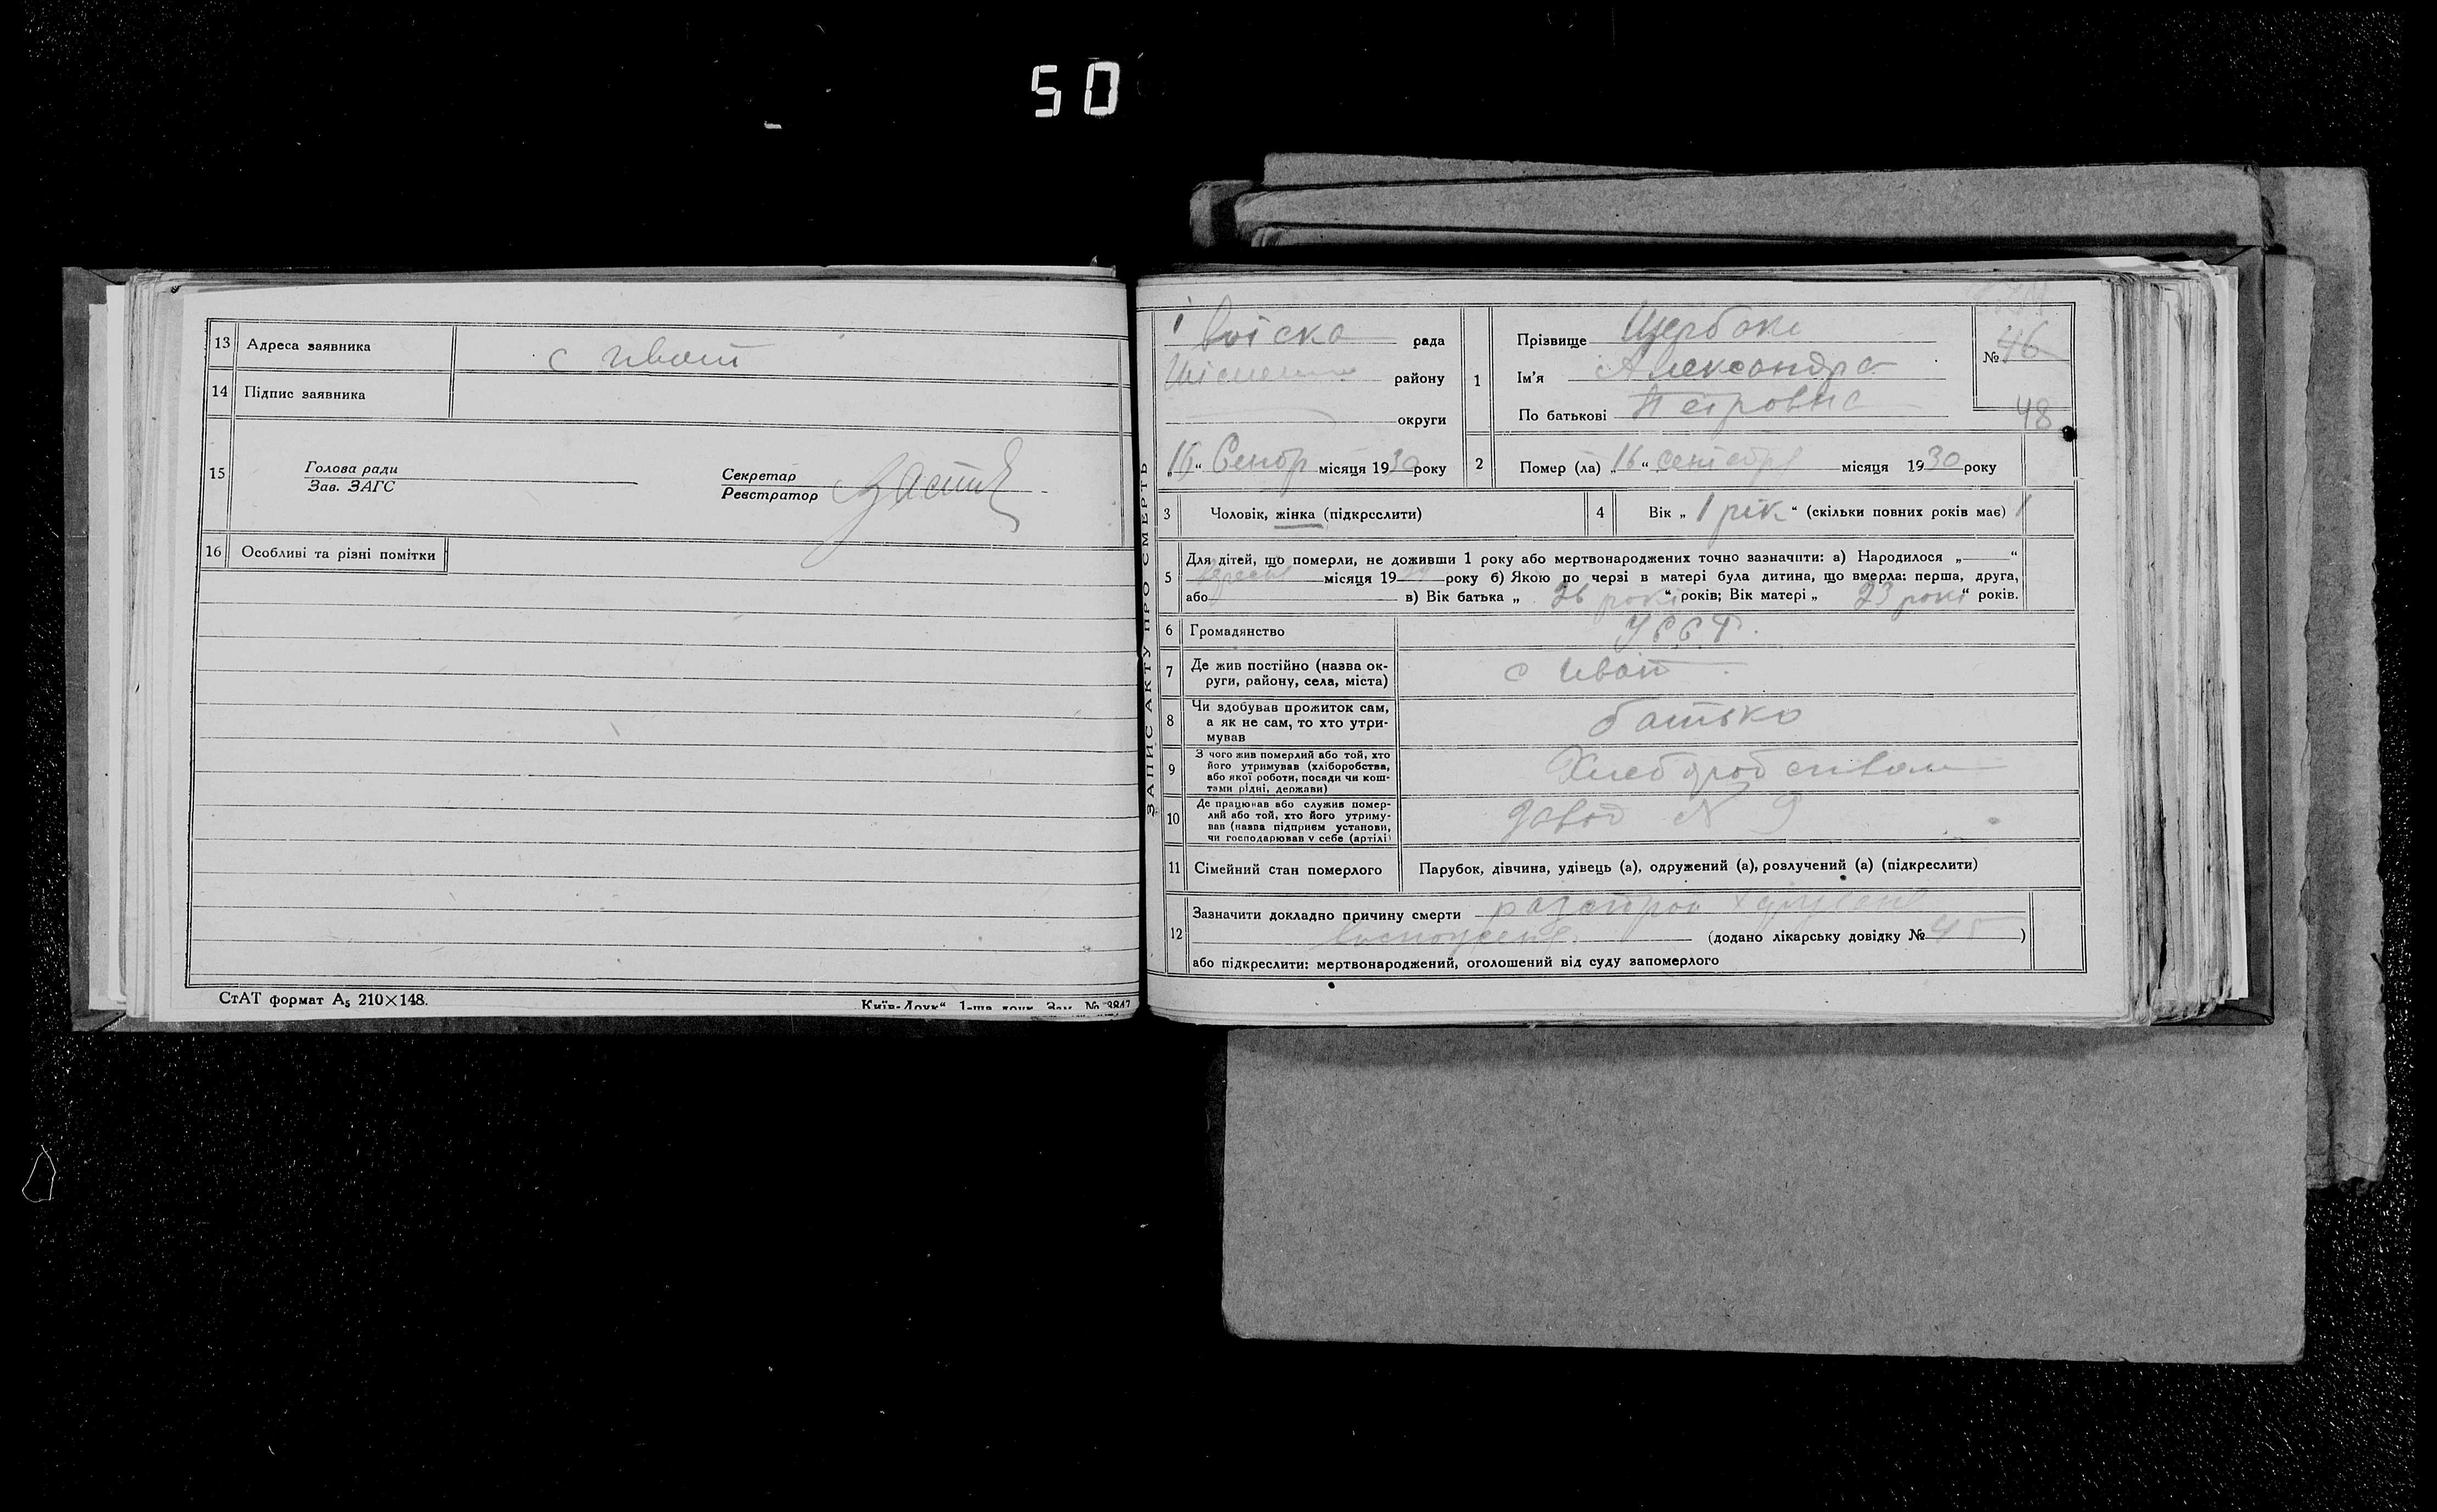 50
13 Адреса заявника с Ивот
14 Підпис заявника
15 Голова ради
Зав. ЗАГС
Секретар
Реєстратор
16 Особливі та різні помітки
СтАТ формат А₅ 210×148.
Київ-Друк" 1-ша друк. Зам. № 3847
ЗАПИС АКТУ ПРО СМЕРТЬ
рада
району
округи
„16" Сентбр місяця 1930 року
1 Прізвище Щербак
Ім'я Александра
По батькові Петровна
№ 46
48
2 Помер (ла) „16" сентебря місяця 1930 року
3 Чоловік, жінка (підкреслити)
4 Вік „ 1 рік " (скільки повних років має) 1
5 Для дітей, що померли, не доживши 1 року або мертвонароджених точно зазначити: а) Народилося „ "
місяця 19 року б) Якою по черзі в матері була дитина, що вмерла: перша, друга,
або в) Вік батька „ 26 років " років; Вік матері „ 23 роки " років.
6 Громадянство УССР.
7 Де жив постійно (назва ок-
руги, району, села, міста)
с Ивот
8 Чи здобував прожиток сам,
а як не сам, то хто утри-
мував
батько
9 З чого жив померлий або той, хто
його утримував (хліборобства,
або якої роботи, посади чи кош-
тами рідні, держави)
10 Де працював або служив помер-
лий або той, хто його утриму-
вав (назва підприєм установи,
чи господарював у себе (артілі)
завод № 9
11 Сімейний стан померлого Парубок, дівчина, удівець (а), одружений (а), розлучений (а) (підкреслити)
12 Зазначити докладно причину смерти
(додано лікарську довідку № 45 )
або підкреслити: мертвонароджений, оголошений від суду запомерлого